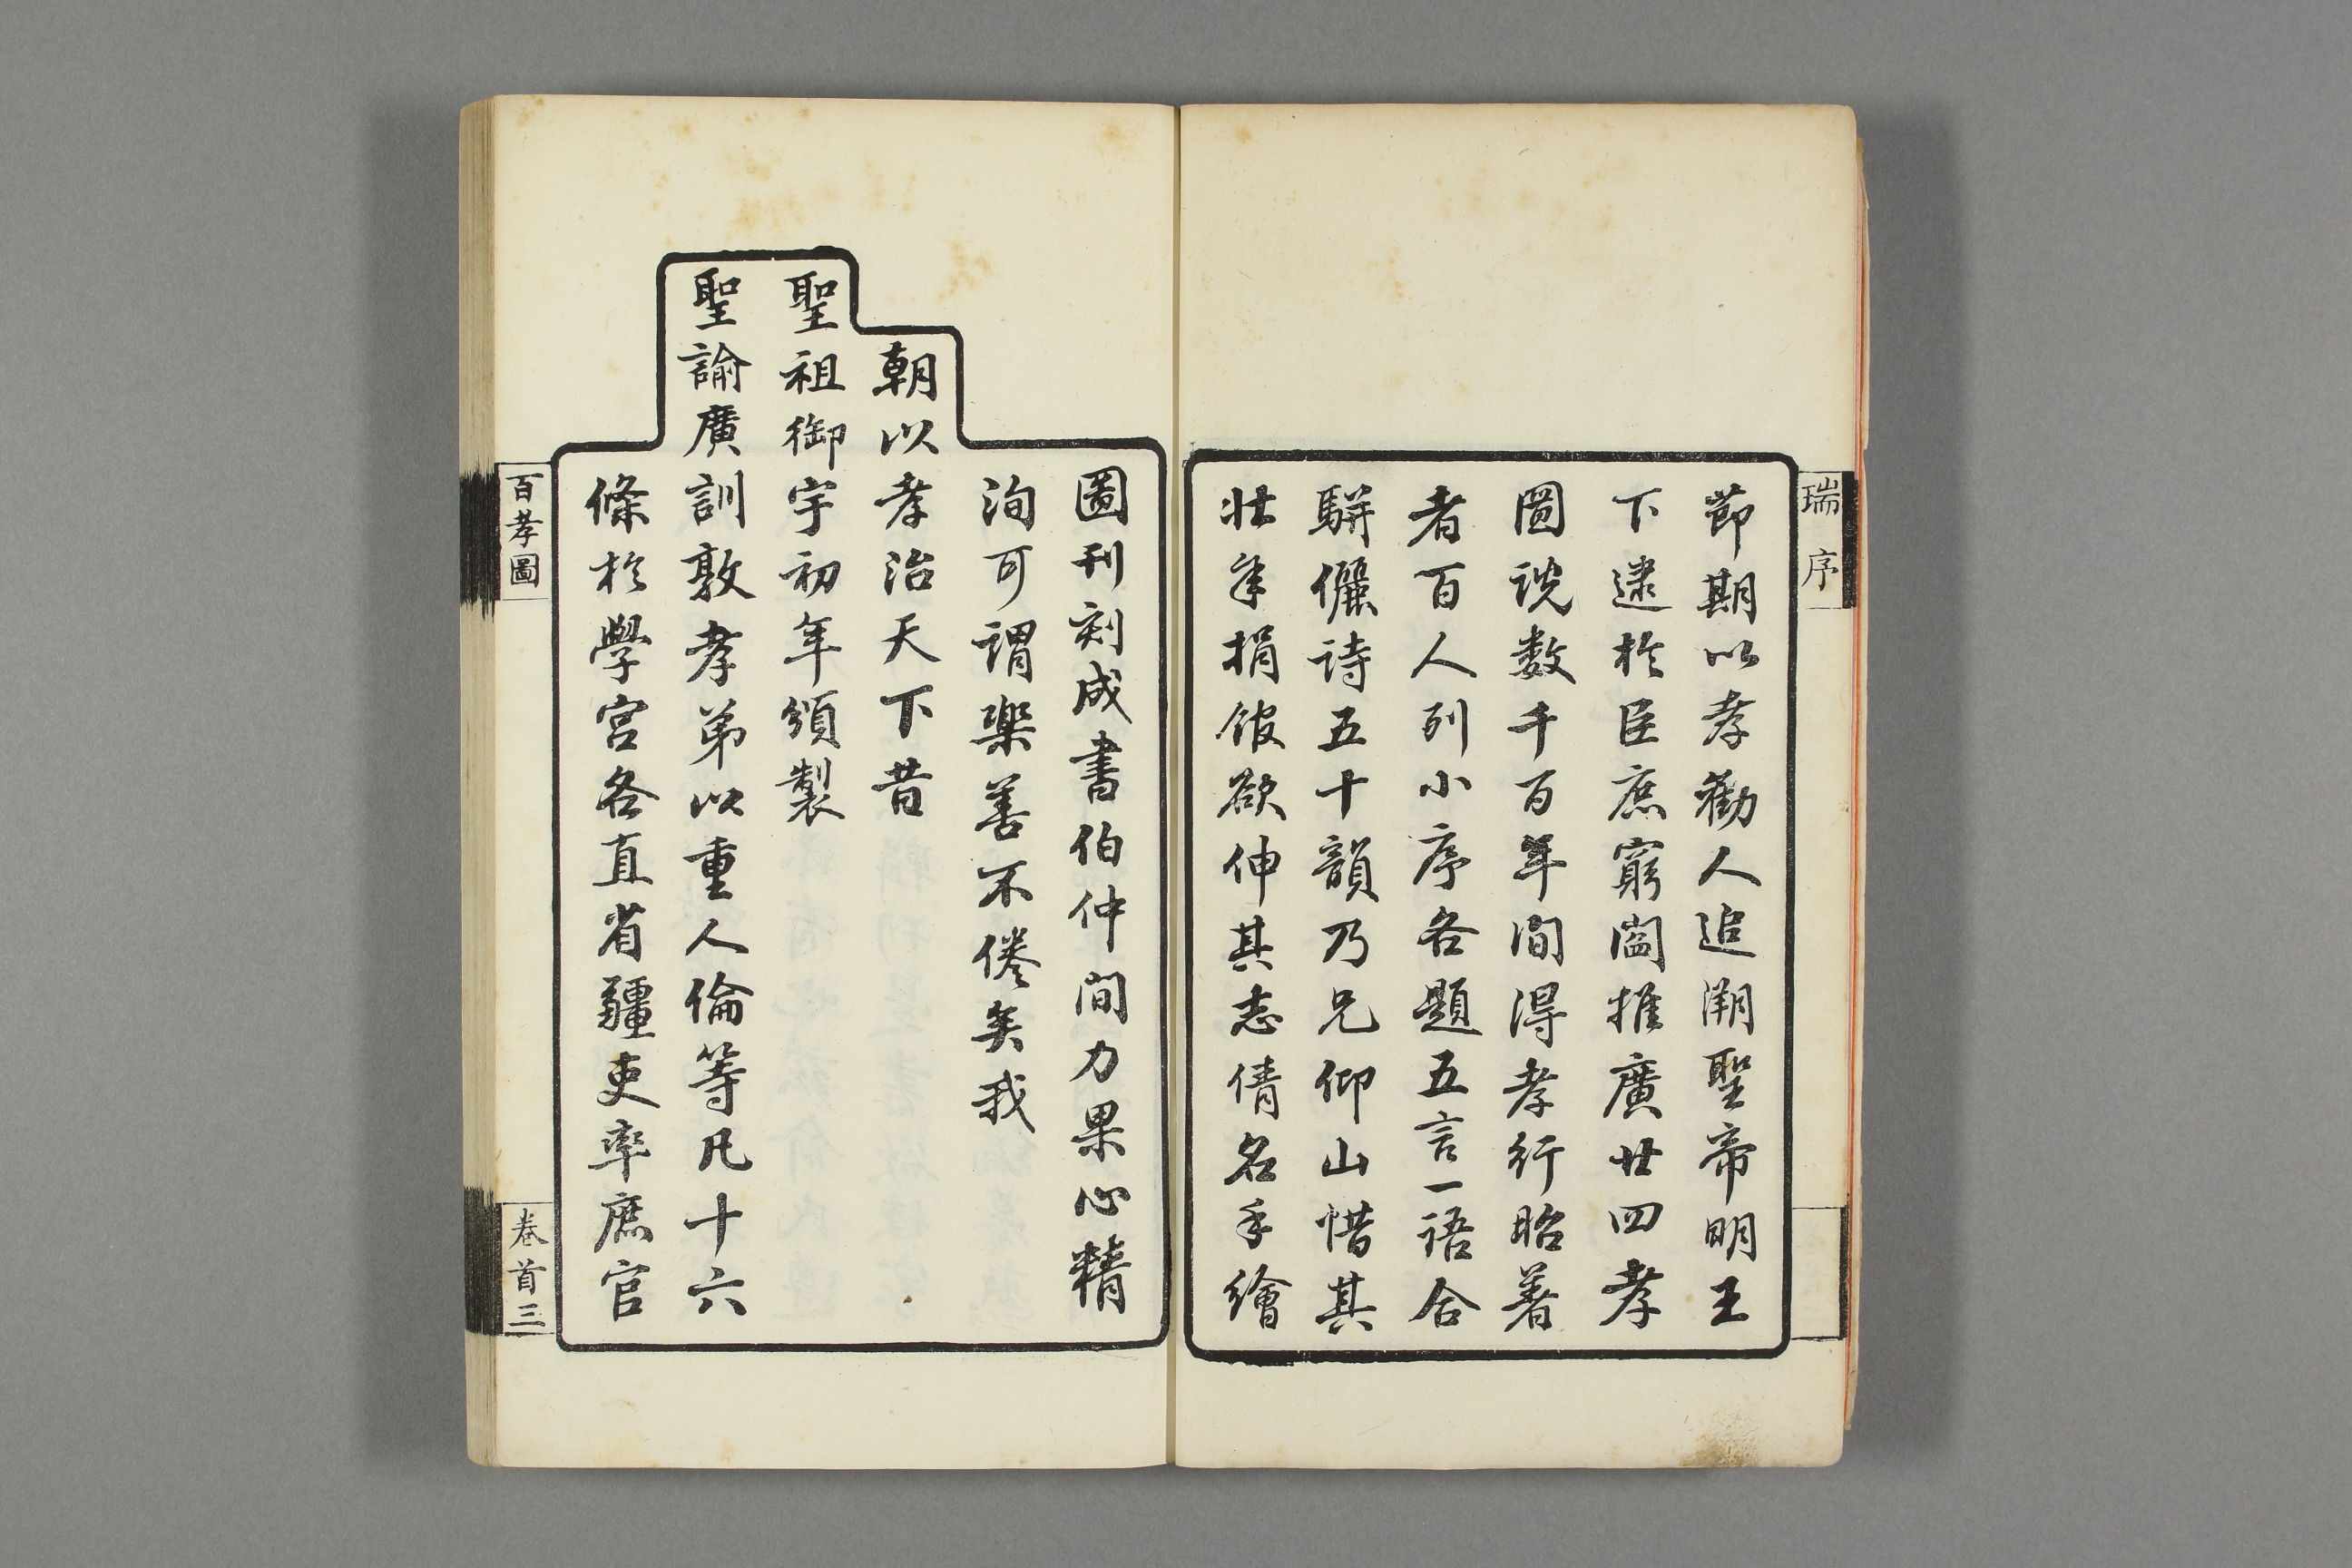 瑞序
節期以孝勸人追溯聖帝明王
下逮於臣庶窮閻推廣廿四孝
圖說数千百年間得孝行昭著
者百人列小序各題五言一語合
駢儷詩五十韻乃兄仰山惜其
壮年捐館欲伸其志倩名手繪
圖刊刻成書伯仲間力果心精
洵可謂樂善不倦矣我
朝以孝治天下昔
聖祖御宇初年頒製
聖諭廣訓敦孝弟以重人倫等凡十六
條於學宮各直省疆吏率庶官
百孝圖
卷首三